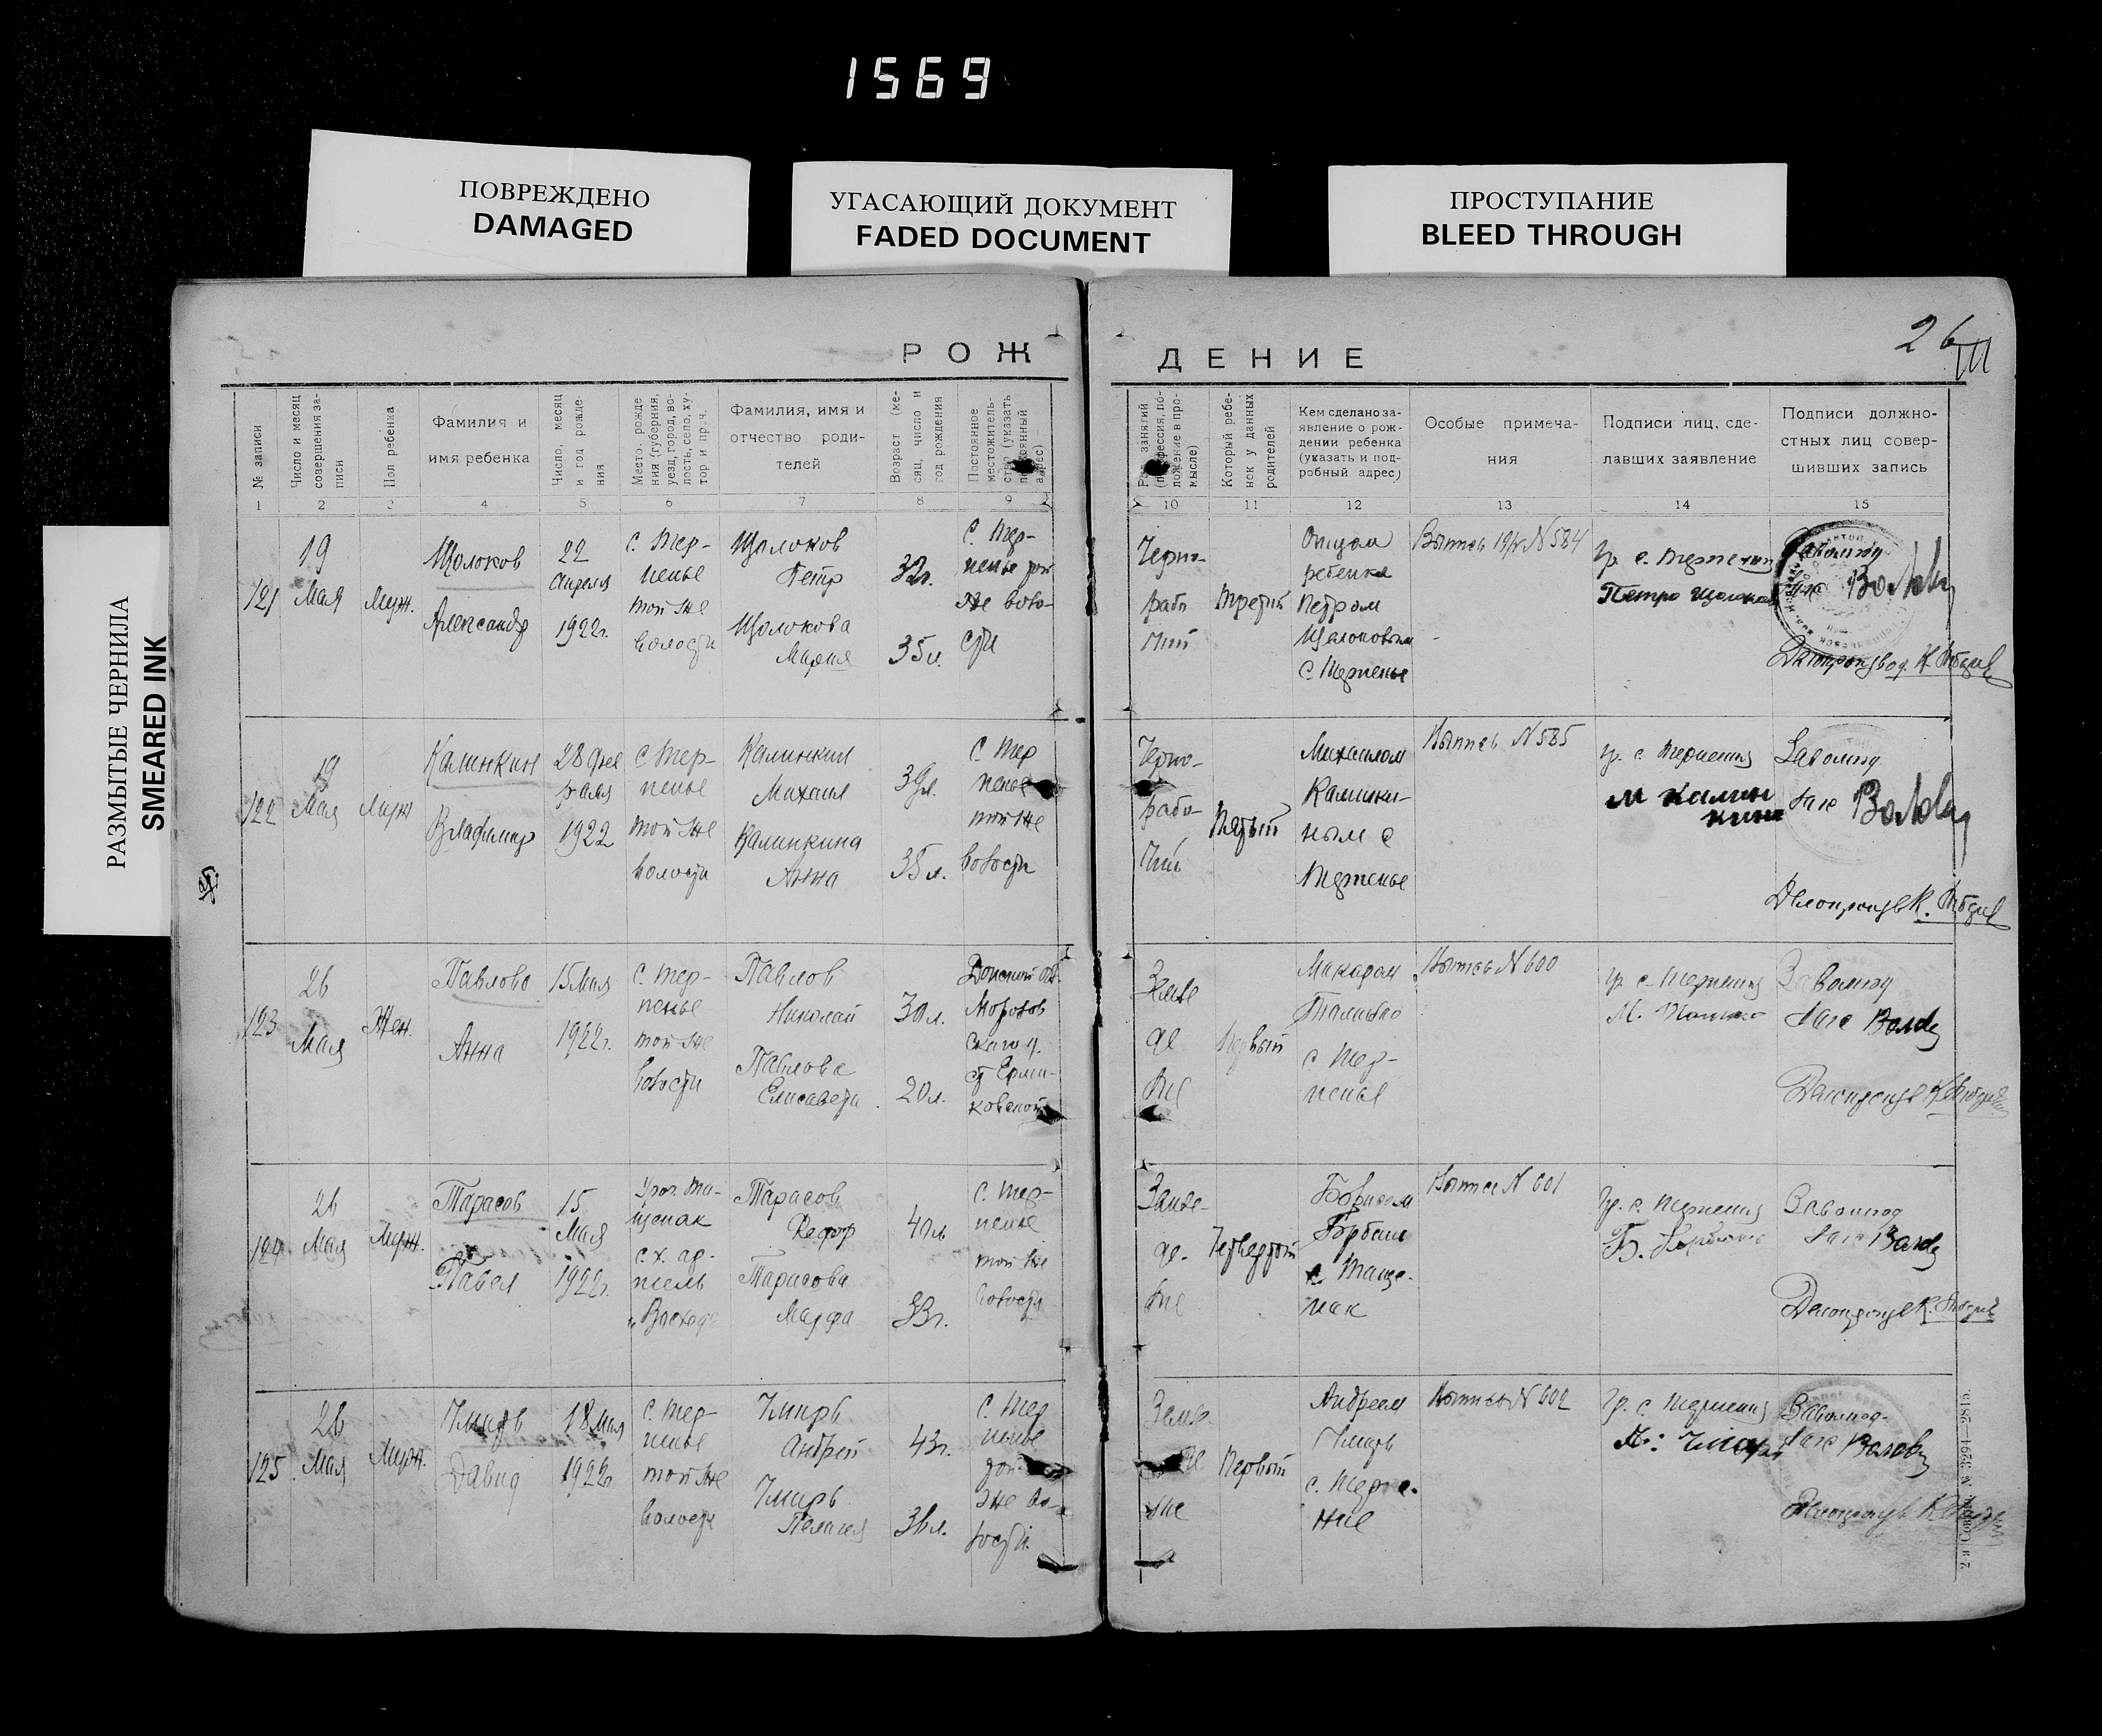 1569
ПОВРЕЖДЕНО
DAMAGED
УГАСАЮЩИЙ ДОКУМЕНТ
FADED DOCUMENT
ПРОСТУПАНИЕ
BLEED THROUGH
РАЗМЫТЫЕ ЧЕРНИЛА
SMEARED INK
26
РОЖ
ДЕНИЕ
№ записи
Число и месяц
совершения за-
писи
Пол ребенка
Фамилия и
имя ребенка
Число, месяц
и год рожде-
ния
Место, рожде
ния (губерния,
уезд, город, во-
лость, село, ху-
тор и проч.
Фамилия, имя и
отчество роди-
телей
Возраст (ме-
сяц, число и
год рождения
Постоянное
местожитель-
ство (указать
адрес)
1 2 3 4 5 6 7 8 9
Род занятий
ложение в про-
мысле)
Который ребе-
нок у данных
родителей
Кем сделано за-
явление о рож-
дении ребенка
(указать и под-
робный адрес)
Особые примеча-
ния
Подписи лиц, сде-
лавших заявление
Подписи должно-
стных лиц совер-
шивших запись
10 11 12 13 14 15
121
19
Мая
Муж.
Щолоков
Александр
22
апреля
1922г.
с. Тер-
пенье
той же
волости
Щолоков
Петр
Щолокова
Мария
32г.
35л.
с. Тер-
пенье той
же воло-
сти
Черно-
рабо
чий
третий
Отцом
ребенка
Петром
Щолоковым
с Терпенье
Выпись 19/V N 584
Гр. с. Терпения
Петро Щолоков
Завотд
122
19
Мая
Муж
Калинкин
Владимир
28 фев
раля
1922
с Тер-
пенье
той же
волости
Калинкин
Михаил
Калинкина
Анна
39л.
35л.
с Тер
пенье
той же
волости
Черно-
рабо-
чий
Пятый
Михаилом
Калинки-
ным с
Терпенье
Выпись N 585
гр. с. Терпения
М Калин
кин
123
26
Мая
Жен.
Павлова
Анна
15 Мая
1922г.
с. Тер-
пенье
той же
волости
Павлов
Николай
Павлова
Елисавета
30л.
20л.
Донской об.
Морозов
ского
ст Ерма-
ковской
Земле
де
лие
Первый
Макаром
с Тер-
пенье
Выпись N 600
гр. с. Терпения
124
26
Мая
Муж.
Тарасов
Павел
15
Мая
1922г.
Урол. Та-
щенак
с. х. ар-
тель
„Восход"
Тарасов
Федор
Тарасова
Марфа
40л
33г.
с. Тер-
пенье
той же
волости
Земле-
де-
лие
Четвертый
Борисом
с Таще-
нак
Выпись N 601
Гр. с. Терпения
125
26
Мая
Муж.
Чмирь
Давид
18 Мая
1922г
с. Тер-
пенье
той же
волости
Чмирь
Андрей
Чмирь
Пелагея
43г.
36л.
с. Тер
пенье
той
же во-
лости
Земле-
де
лие
Первый
Андреем
Чмирь
с. Терпе-
ние
Выпись N 602
Гр. с. Терпения
А. Чмирь